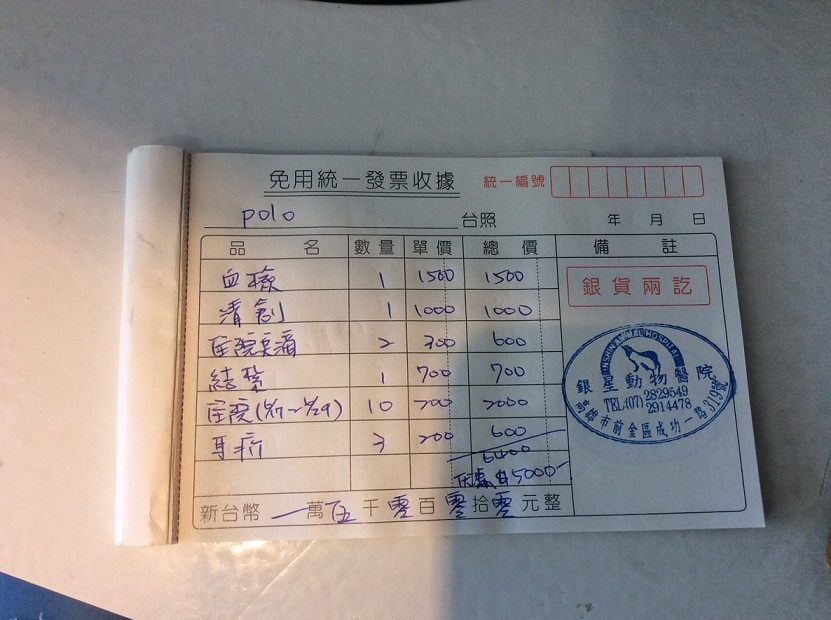 免用統一發票收據 統一編號
polo 台照 年 月 日
品 名 數量 單價 總價 備 註
血檢 1 1500 1500
清創 1 1000 1000
2 300 600
結紮 1 700 700
住院 10 200 2000
3 200 600
6400
優惠 $5000-
新台幣 一 萬 伍 千 零 百 零 拾 零 元整
銀貨兩訖
ANIMAL HOSPITAL
銀星動物醫院
TEL:(07) 2829549
2914478
高雄市前金區成功一路319號